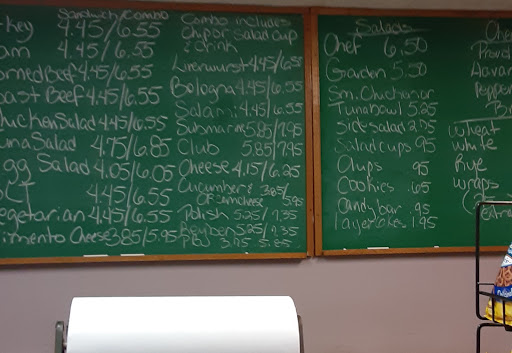 Sandwich/Combo
key 4.45/6.55
am 4.45/6.55
orned Beef 4.45/6.55
oast Beef 4.45/6.55
hicken Salad 4.45/6.55
una Salad 4.75/6.85
gg Salad 4.05/6.05
LT 4.45/6.55
egetarian 4.45/6.55
imento Cheese 3.85/5.95
Combo includes
Chip or Salad cup
& drink
Liverwurst 4.45/6.55
Bologna 4.45/6.55
Salami 4.45/6.55
Submarine 5.85/7.95
Club 5.85/7.95
Cheese 4.15/6.25
Cucumber & 3.85/
Cr. Cheese 5.95
Polish 5.25/7.35
Reuben 5.25/7.35
PBJ 3.75 5.85
Salads
Chef 6.50
Garden 5.50
Sm. Chick or
Tuna bowl 5.25
Side Salad 2.75
Salad cups .95
Chips .95
Cookies .65
Candy bar .95
layer cakes 1.95
Che
Provol
Havar
Pepper
Br
Wheat
White
Rye
wraps